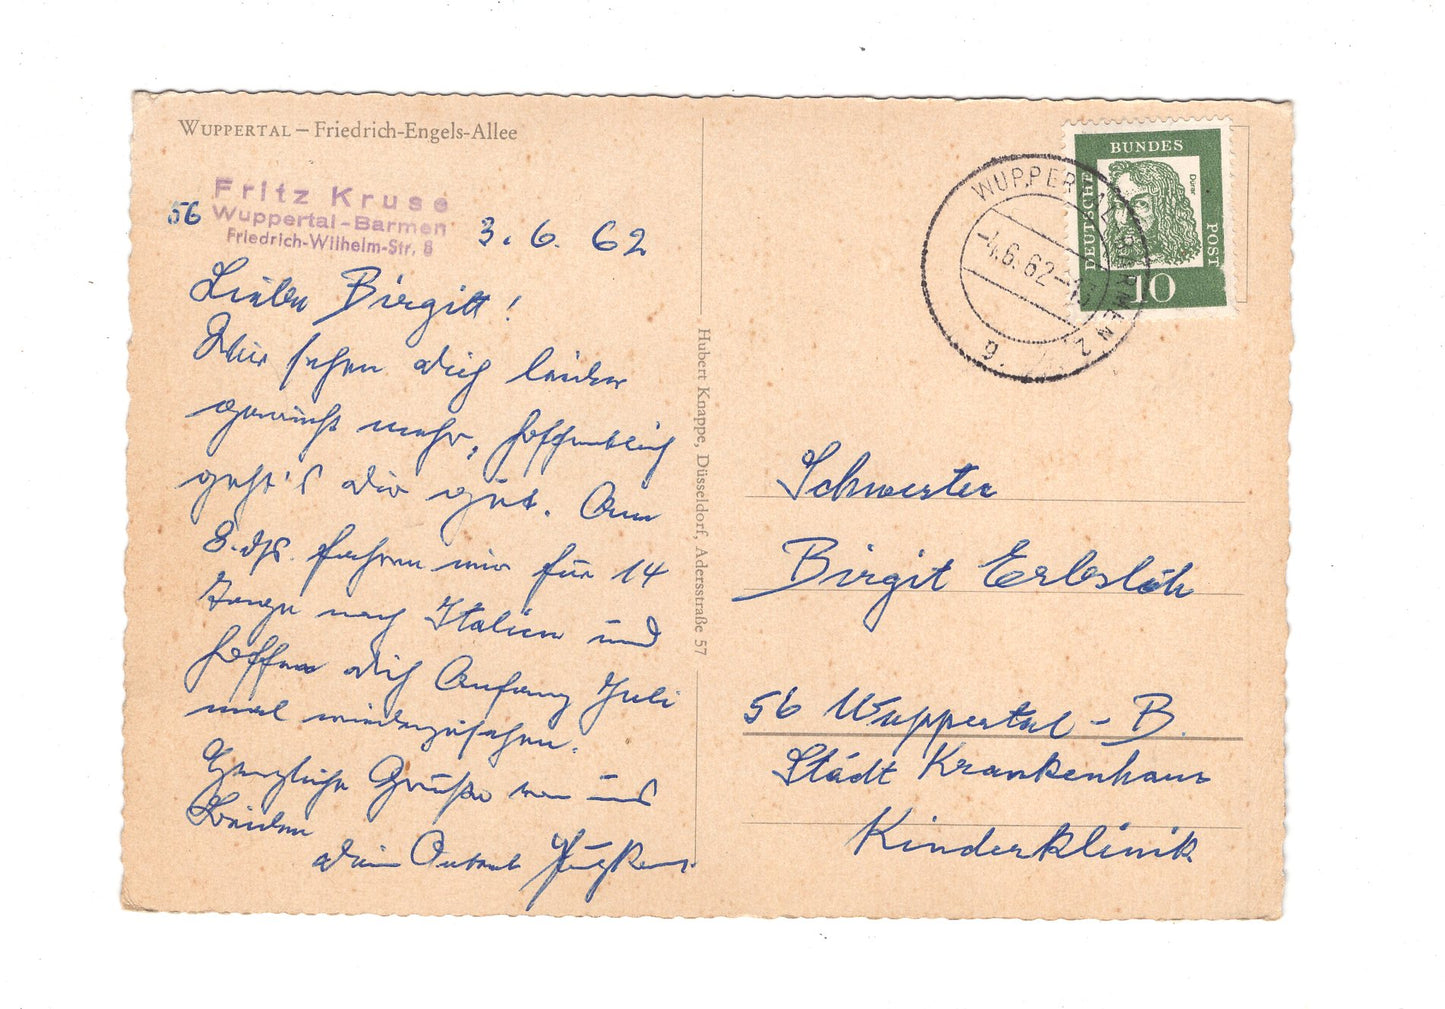 WUPPERTAL – Friedrich-Engels-Allee
Fritz Kruse
56 Wuppertal-Barmen
Friedrich-Wilhelm-Str. 8
3. 6. 62
Liebe Birgitt!
Wir sehen dich leider
garnicht mehr, hoffentlich
geht's dir gut. Am
8. ds. fahren wir für 14
Tage nach Italien und
hoffen dich Anfang Juli
mal wiederzusehen.
Herzliche Grüße von uns
Beiden
dein Onkel
Hubert Knappe, Düsseldorf, Adersstraße 57
WUPPERTAL-BARMEN 2
-4.6.62-
g
DEUTSCHE
BUNDES
POST
Dürer
10
Schwester
Birgit Erbslöh
56 Wuppertal - B.
Städt Krankenhaus
Kinderklinik